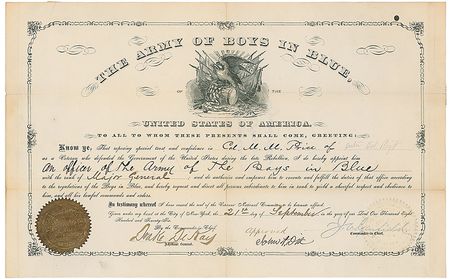 THE ARMY OF BOYS IN BLUE,
OF THE
UNITED STATES OF AMERICA.
TO ALL TO WHOM THESE PRESENTS SHALL COME, GREETING:
Know ye, That reposing special trust and confidence in Col. M. M. Price of
as a Veteran who defended the Government of the United States during the late Rebellion, I do hereby appoint him
An officer of The Army of The Boys in Blue
with the rank of Major General and do authorize and empower him to execute and fulfill the duties of that office according
to the regulations of the Boys in Blue, and hereby request and direct all persons subordinate to him in rank to yield a cheerful respect and obedience to
him, and all his lawful commands and orders.
In testimony whereof I have caused the seal of the Veteran National Committee to be hereunto affixed.
Given under my hand at the City of New York, the 21st September in the year of our Lord One Thousand Eight
Hundred and Seventy
By the Commander in Chief
Approved
Adjutant General.
John A Dix
Commander in Chief.